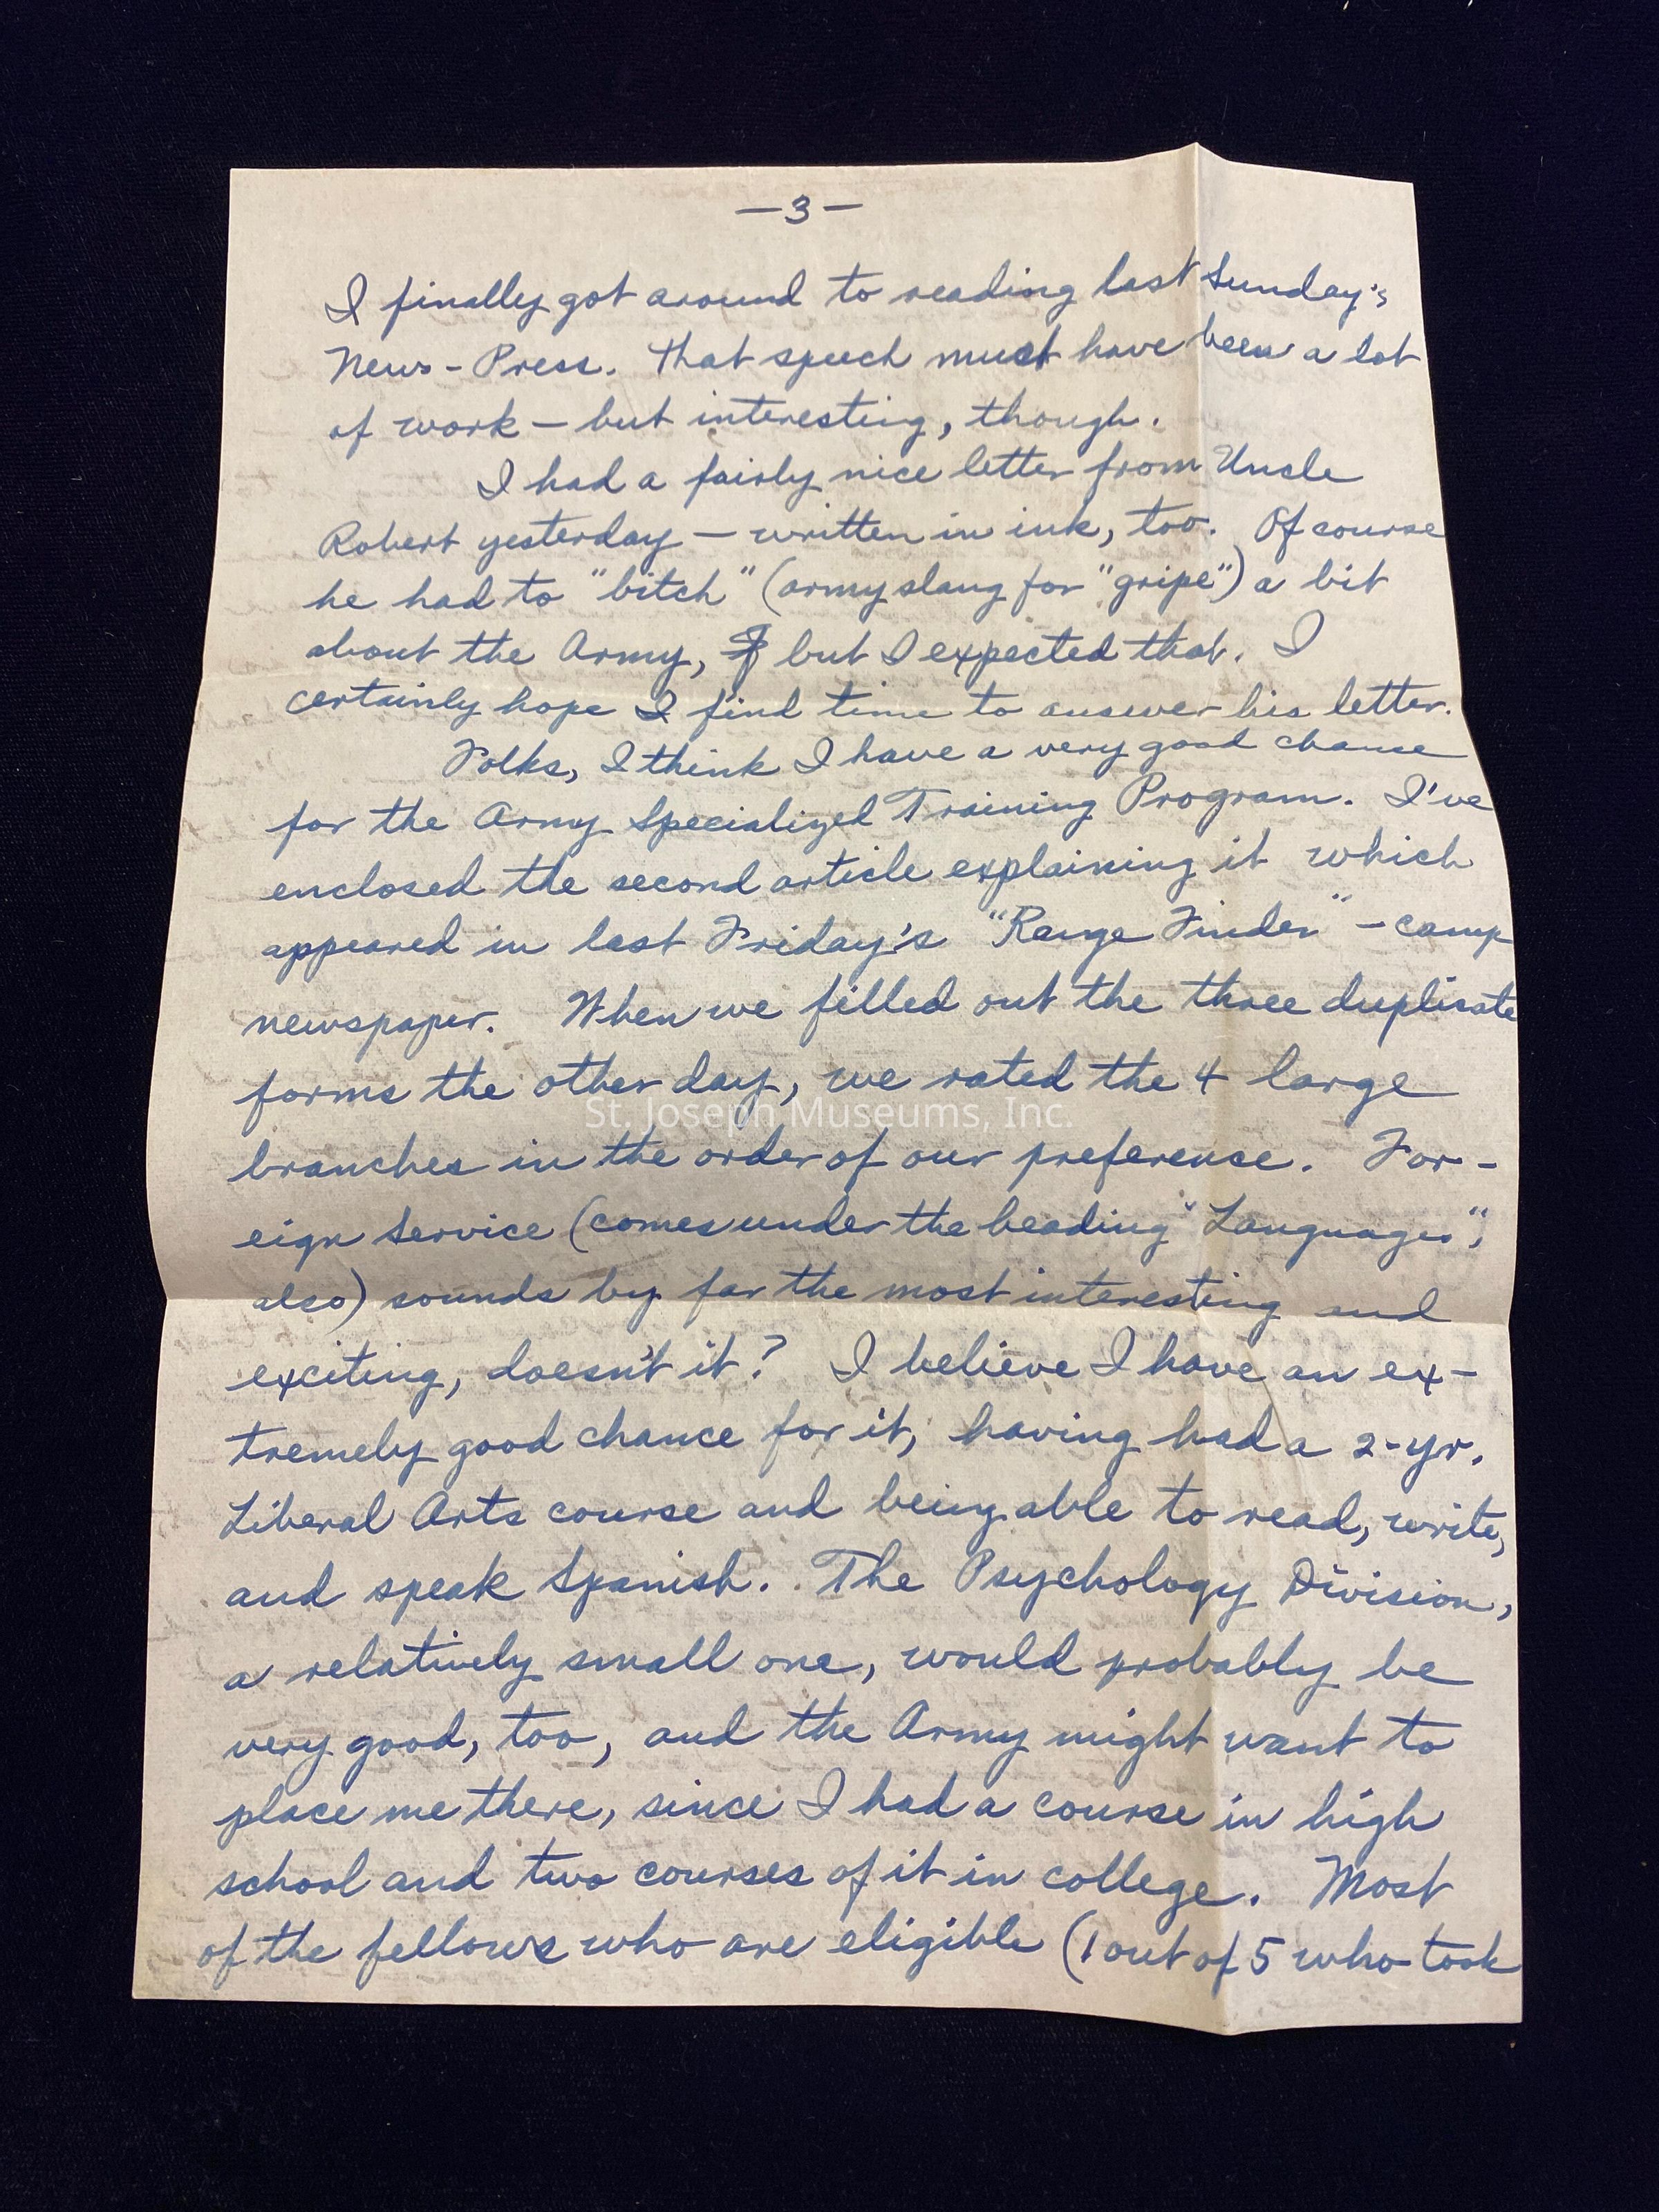 —3—
I finally got around to reading last Sunday's
News-Press. That speech must have been a lot
of work — but interesting, though.
I had a fairly nice letter from Uncle
Robert yesterday — written in ink, too. Of course
he had to "bitch" (army slang for "gripe") a bit
about the Army, but I expected that. I
certainly hope I find time to answer his letter.
Folks, I think I have a very good chance
for the Army Specialized Training Program. I've
enclosed the second article explaining it which
appeared in last Friday's "Range Finder" — camp
newspaper. When we filled out the three duplicate
forms the other day, we rated the 4 large
branches in the order of our preference. For-
eign Service (comes under the heading "Languages",
also) sounds by far the most interesting and
exciting, doesn't it? I believe I have an ex-
tremely good chance for it, having had a 2-yr.
Liberal Arts course and being able to read, write,
and speak Spanish. The Psychology Division,
a relatively small one, would probably be
very good, too, and the Army might want to
place me there, since I had a course in high
school and two courses of it in college. Most
of the fellows who are eligible (1 out of 5 who took
St. Joseph Museums, Inc.